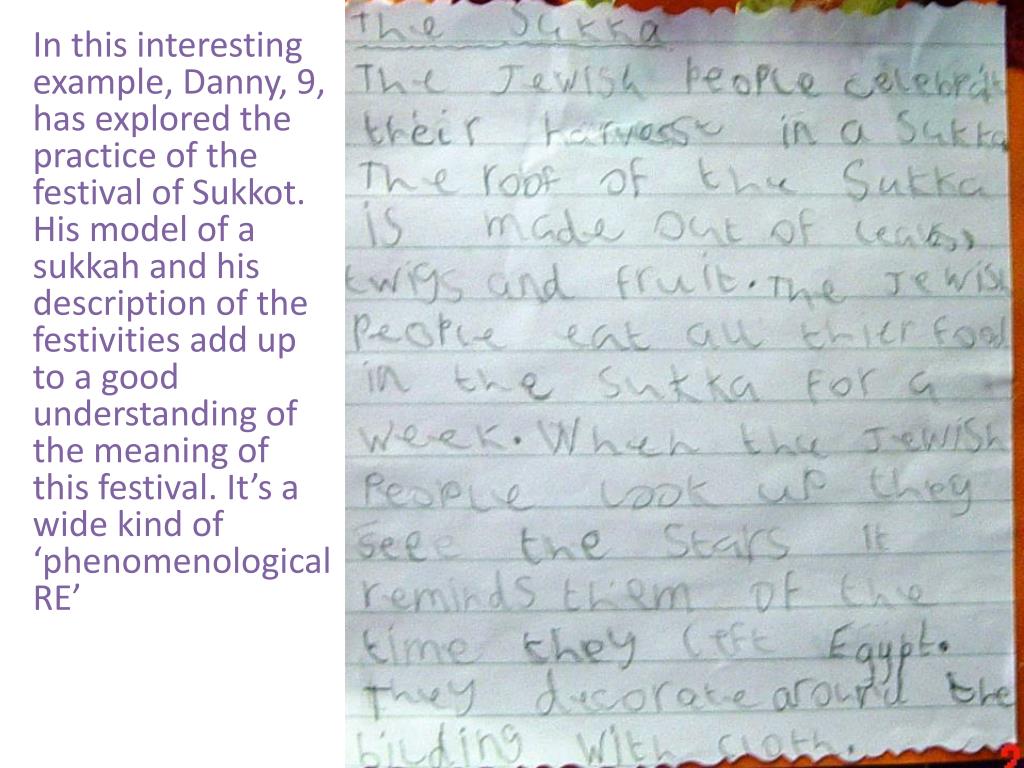 In this interesting
example, Danny, 9,
has explored the
practice of the
festival of Sukkot.
His model of a
sukkah and his
description of the
festivities add up
to a good
understanding of
the meaning of
this festival. It’s a
wide kind of
‘phenomenological
RE’
The Sukka
The Jewish people celebrat
their harvest in a Sukka
The roof of the Sukka
is made out of leaves,
twigs and fruit. The Jewish
People eat all thier food
in the Sukka for a
week. When the Jewish
People look up they
seee the stars it
reminds them of the
time they left Egypt.
They decorate around the
bilding with cloth.
2